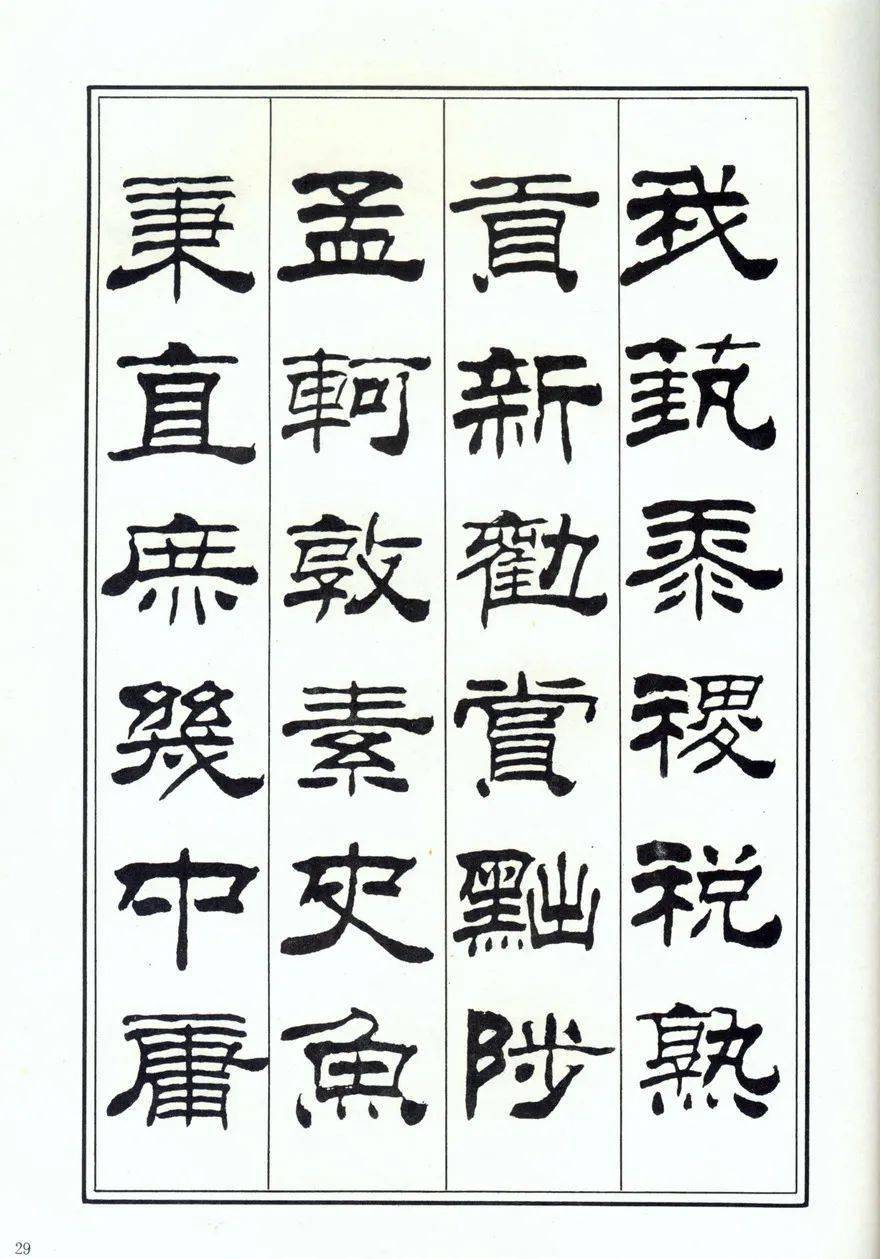 我藝黍稷稅熟
貢新勸賞黜陟
孟軻敦素史魚
秉直庶幾中庸
29